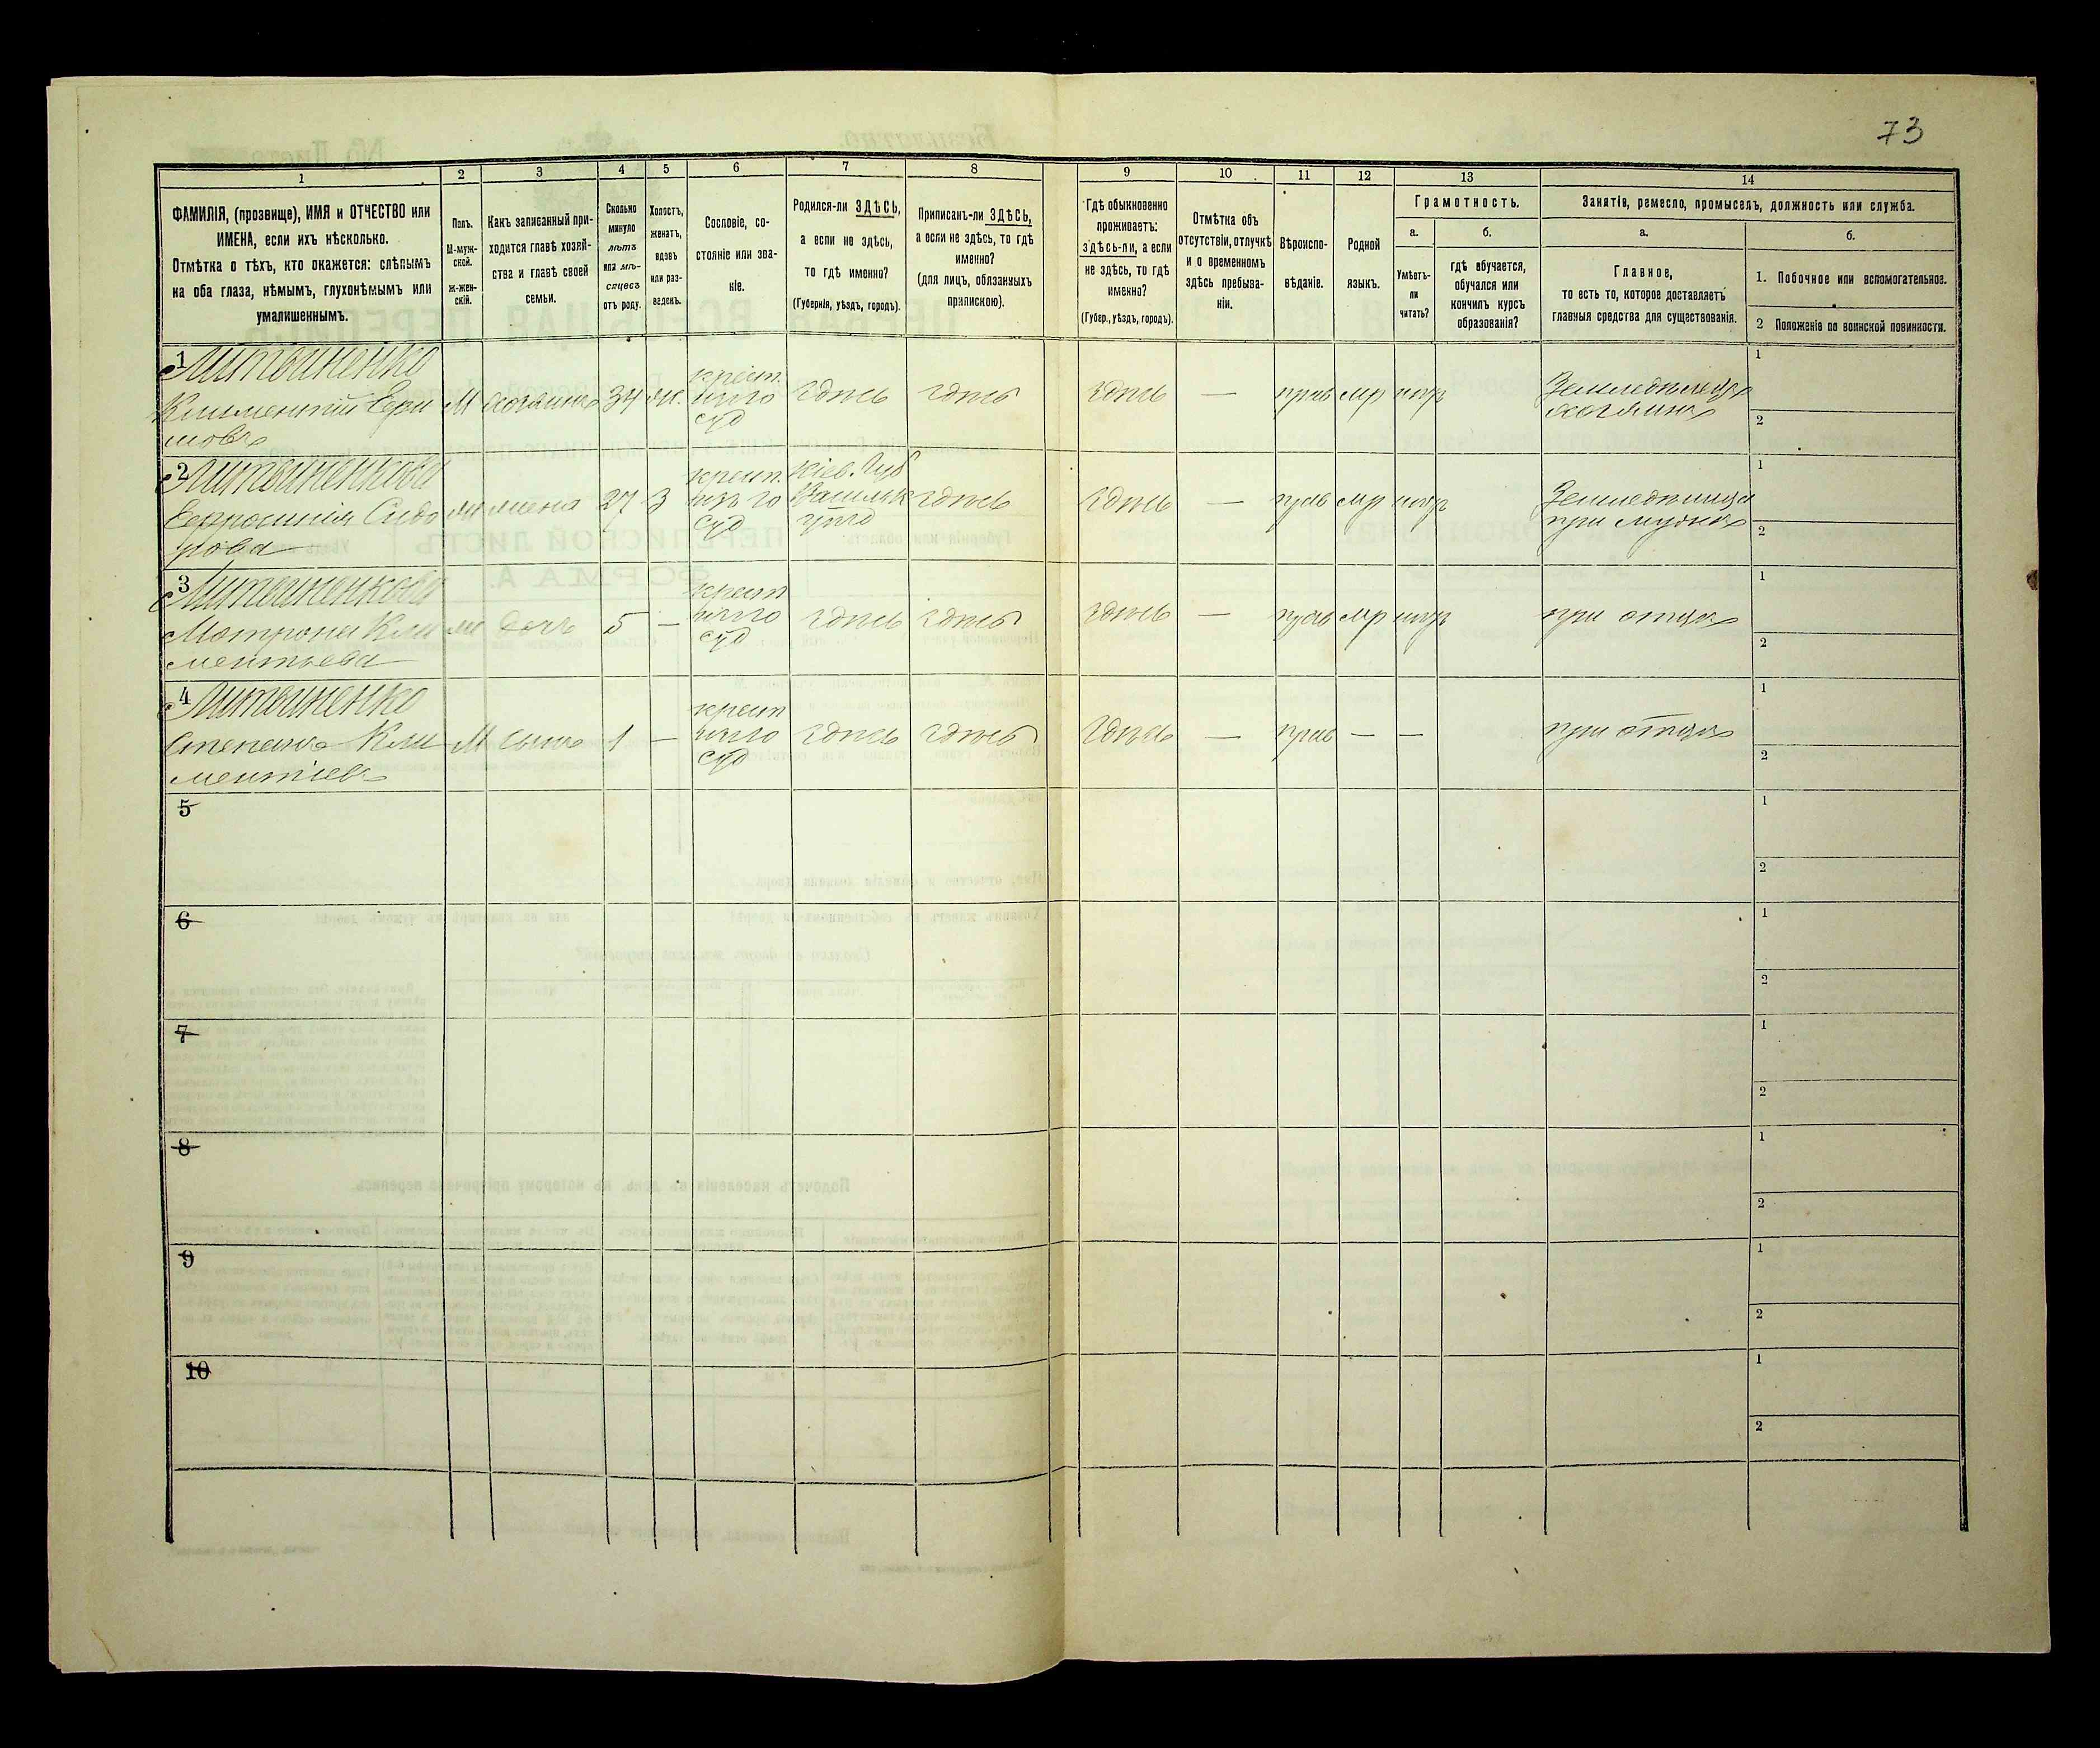 73
1
2
3
4
5
6
7
8
9
10
11
12
13
14
ФАМИЛІЯ, (прозвище), ИМЯ и ОТЧЕСТВО или
ИМЕНА, если ихъ нѣсколько.
Отмѣтка о тѣхъ, кто окажется: слѣпымъ
на оба глаза, нѣмымъ, глухонѣмымъ или
умалишеннымъ.
Полъ.
М-муж-
ской.
Ж-жен-
скій.
Какъ записанный при-
ходится главѣ хозяй-
ства и главѣ своей
семьи.
Сколько
минуло
лѣтъ
или мѣ-
сяцевъ
отъ роду.
Холостъ,
женатъ,
вдовъ
или раз-
веденъ.
Сословіе, со-
стояніе или зва-
ніе.
Родился-ли ЗДѢСЬ,
а если не здѣсь,
то гдѣ именно?
(Губернія, уѣздъ, городъ).
Приписанъ-ли ЗДѢСЬ,
а если не здѣсь, то гдѣ
именно?
(для лицъ, обязанныхъ
припискою).
Гдѣ обыкновенно
проживаетъ:
здѣсь-ли, а если
не здѣсь, то гдѣ
именно?
(Губер., уѣздъ, городъ).
Отмѣтка объ
отсутствіи, отлучкѣ
и о временномъ
здѣсь пребыва-
ніи.
Вѣроиспо-
вѣданіе.
Родной
языкъ.
Грамотность.
а.
Умѣетъ-
ли
читать?
б.
гдѣ обучается,
обучался или
кончилъ курсъ
образованія?
Занятія, ремесло, промыселъ, должность или служба.
а.
Главное,
то есть то, которое доставляетъ
главныя средства для существованія.
б.
1. Побочное или вспомогательное.
2 Положеніе по воинской повинности.
1 Литвиненко
Климентій Ери
мовъ
М хозяинъ 34 ж.
крест.
суд
здѣсь здѣсь здѣсь — прав мр нѣтъ
Земледѣлецъ
хозяинъ
1
2
2 Литвиненкова
Евфросинія Сидо
рова
жена 27 З
крест.
суд
Кіев. Губ
Васильк
здѣсь здѣсь — прав мр нѣтъ
при мужѣ
1
2
3 Литвиненкова
Мотрона Кли
ментьева
дочь 5 —
крест
суд
здѣсь здѣсь здѣсь — прав мр нѣтъ при отцѣ
1
2
4 Литвиненко
Степанъ Кли
ментіевъ
М сынъ 1 —
крест
суд
здѣсь здѣсь здѣсь — прав — — при отцѣ
1
2
5
1
2
6
1
2
7
1
2
8
1
2
9
1
2
10
1
2